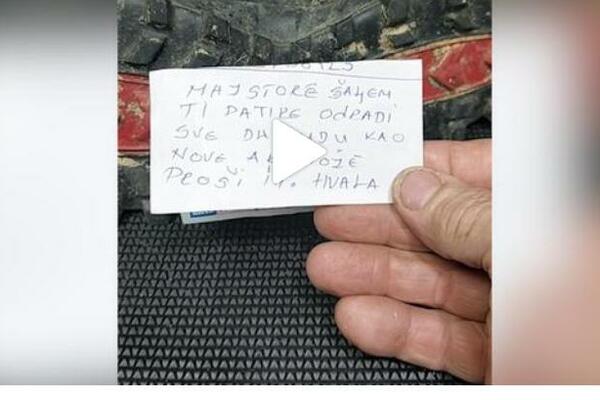 MAJSTORE ŠALJEM
TI PATIKE ODRADI
SVE DA KAO
NOVE
PROŠI IH. HVALA